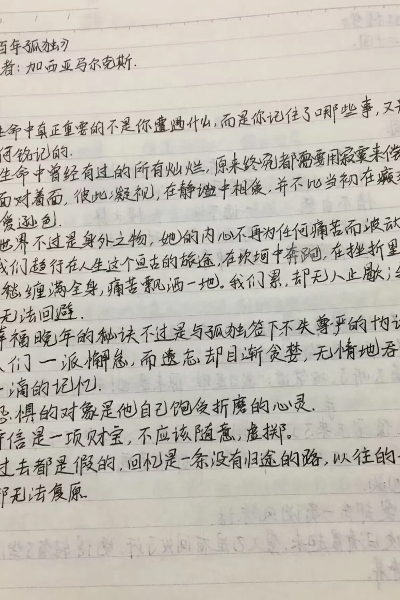 百年孤独》
者：加西亚马尔克斯.
生命中真正重要的不是你遭遇什么，而是你记住了哪些事，又
何铭记的.
生命中曾经有过的所有灿烂，原来终究都需要用寂寞来偿
面对着面，彼此凝视，在静谧中相爱，并不比当初在癫
爱逊色.
世界不过是身外之物，她的内心不再为任何痛苦而波动
我们趋行在人生这个亘古的旅途，在坎坷中奔跑，在挫折里
愁缠满全身，痛苦飘洒一地。我们累，却无人止歇；
无法回避.
幸福晚年的秘诀不过是与孤独签下不失尊严的协议
人们一派懈怠，而遗忘却日渐贪婪，无情地吞
滴的记忆.
恐惧的对象是他自己饱受折磨的心灵.
信是一项财宝，不应该随意，虚掷。
过去都是假的，回忆是一条没有归途的路，以往的一
都无法复原.